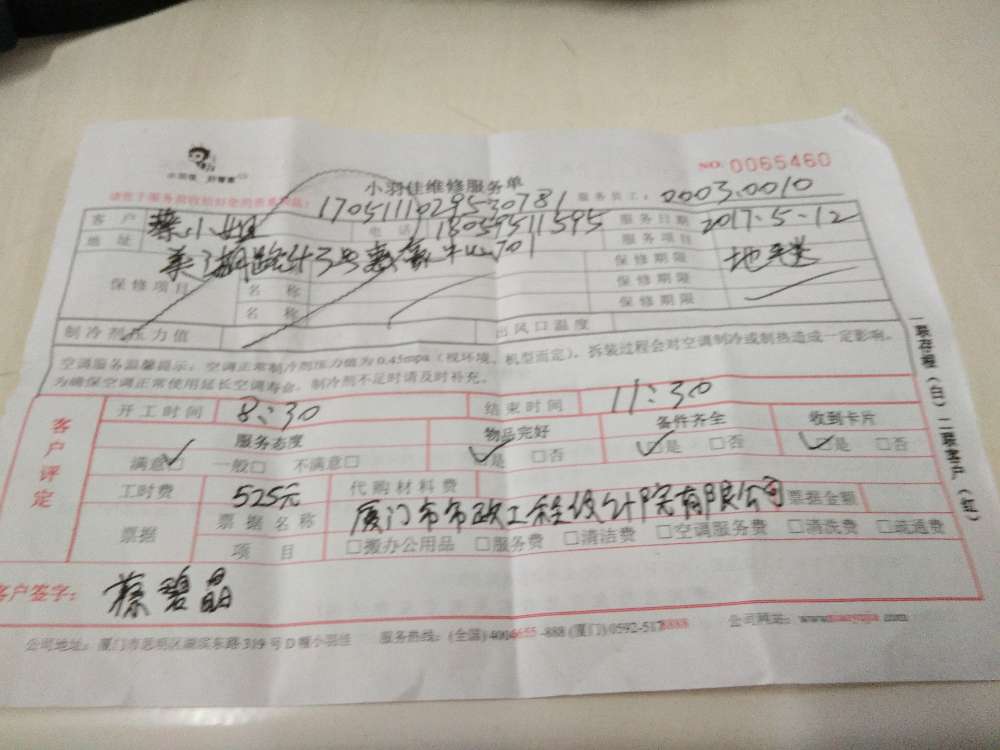 小羽佳 好管家
NO. 0065460
小羽佳维修服务单
1705111029530781 服务员工: 0003.0010
客户 蔡小姐 电话 18059511595 服务日期 2017-5-12
地址 701 服务项目 地毯
保修项目 名称 保修期限
名称 保修期限
名称 保修期限
制冷剂压力值 出风口温度
空调服务温馨提示:空调正常制冷剂压力值为0.45mpa(视环境、机型而定),拆装过程会对空调制冷或制热造成一定影响。
为确保空调正常使用延长空调寿命,制冷剂不足时请及时补充。
客户评定
开工时间 8:30 结束时间 11:30
服务态度 物品完好 备件齐全 收到卡片
满意☑ 一般□ 不满意□ ☑是 □否 ☑是 □否 ☑是 □否
工时费 525元 代购材料费
票据 票据名称 厦门市市政工程设计院有限公司 票据金额
项目 □搬办公用品 □服务费 □清洁费 □空调服务费 □清洗费 □疏通费
客户签字: 蔡碧晶
公司地址:厦门市思明区湖滨东路319号D幢小羽佳 服务热线:(全国)4006655-888 (厦门)0592-5178888 公司网站:www.xiaoyujia.com
一联存根(白)二联客户(红)